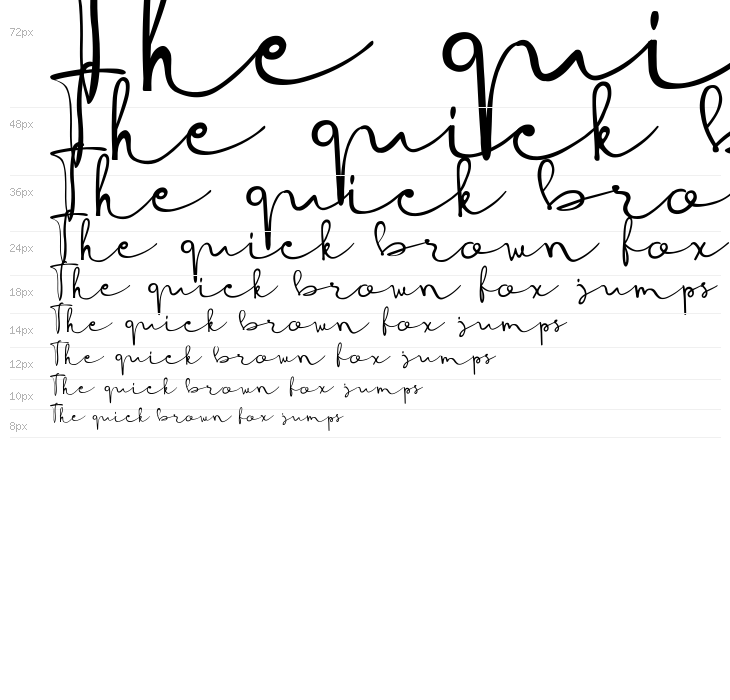 72px The qui
48px The quick b
36px The quick bro
24px The quick brown fox
18px The quick brown fox jumps
14px The quick brown fox jumps
12px The quick brown fox jumps
10px The quick brown fox jumps
8px The quick brown fox jumps